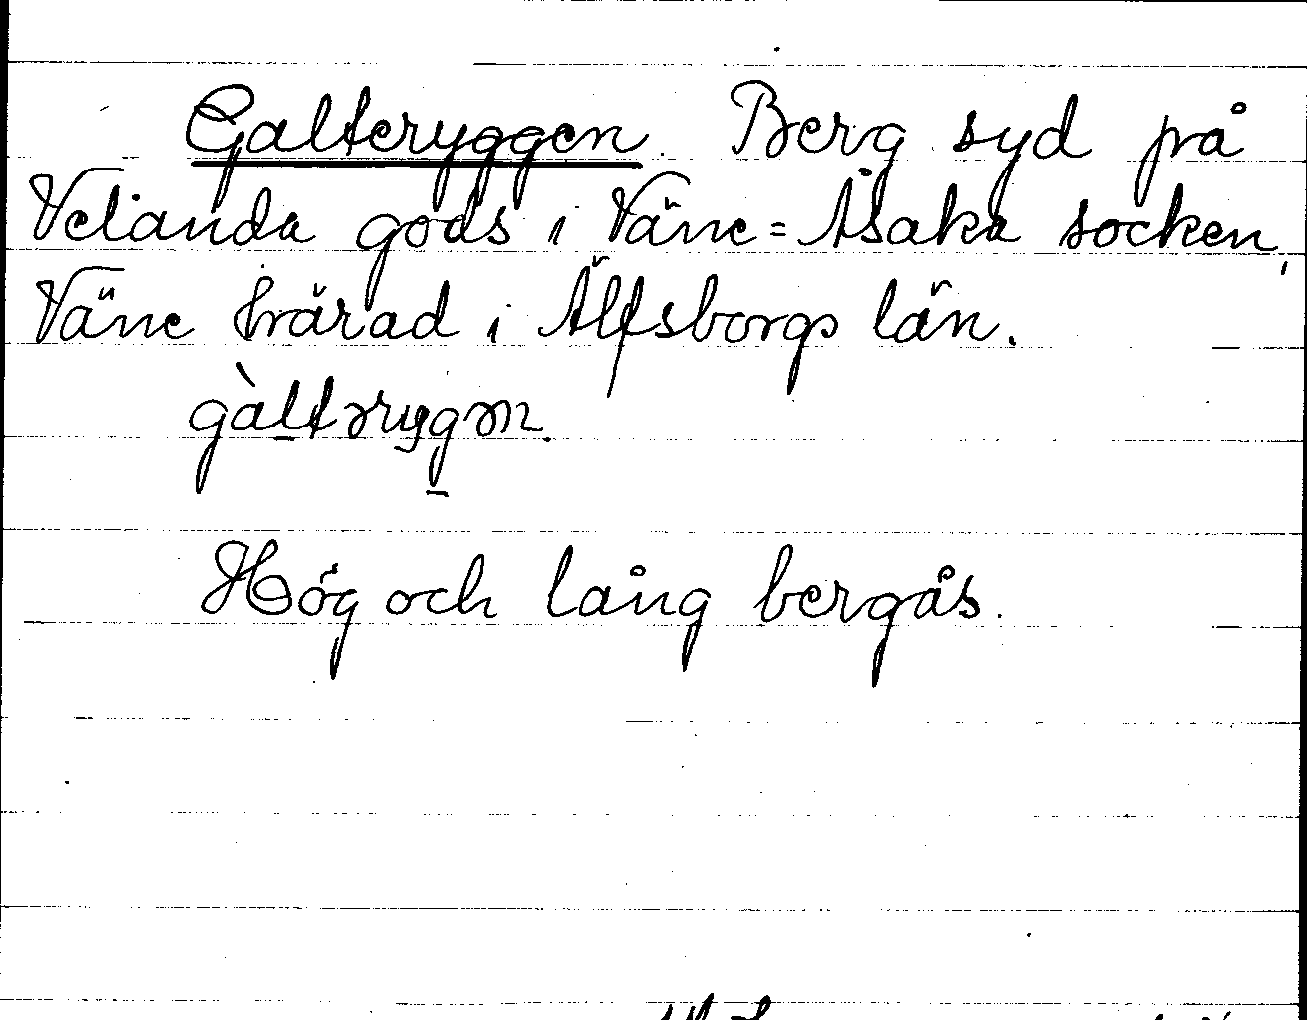 Galteryggen. Berg syd på
Velanda gods i Väne=Åsaka socken,
Väne härad i Älfsborgs län.
gàltərygən.
Hög och lång bergås.